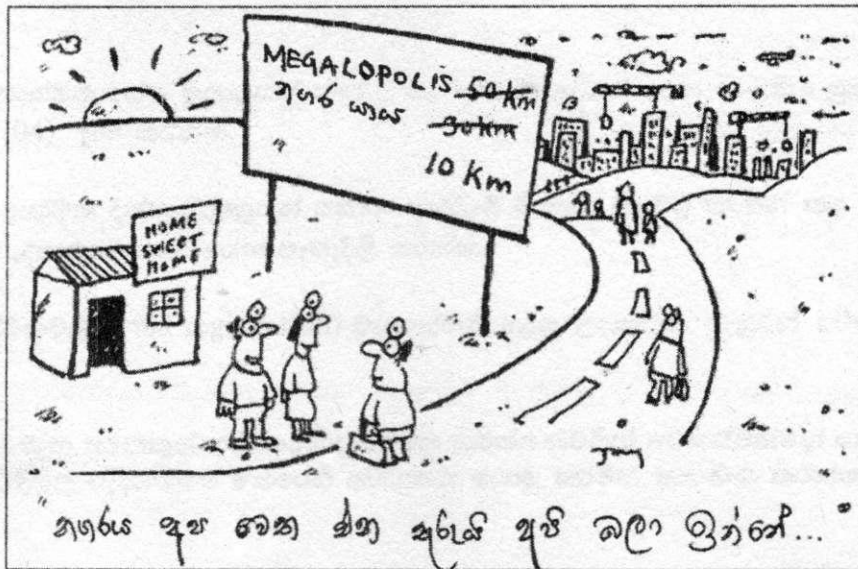 MEGALOPOLIS 50 km
නගර යාය 30 km
10 Km
HOME
SWEET
HOME
නගරය අප වෙත එන තුරුයි අපි බලා ඉන්නේ...